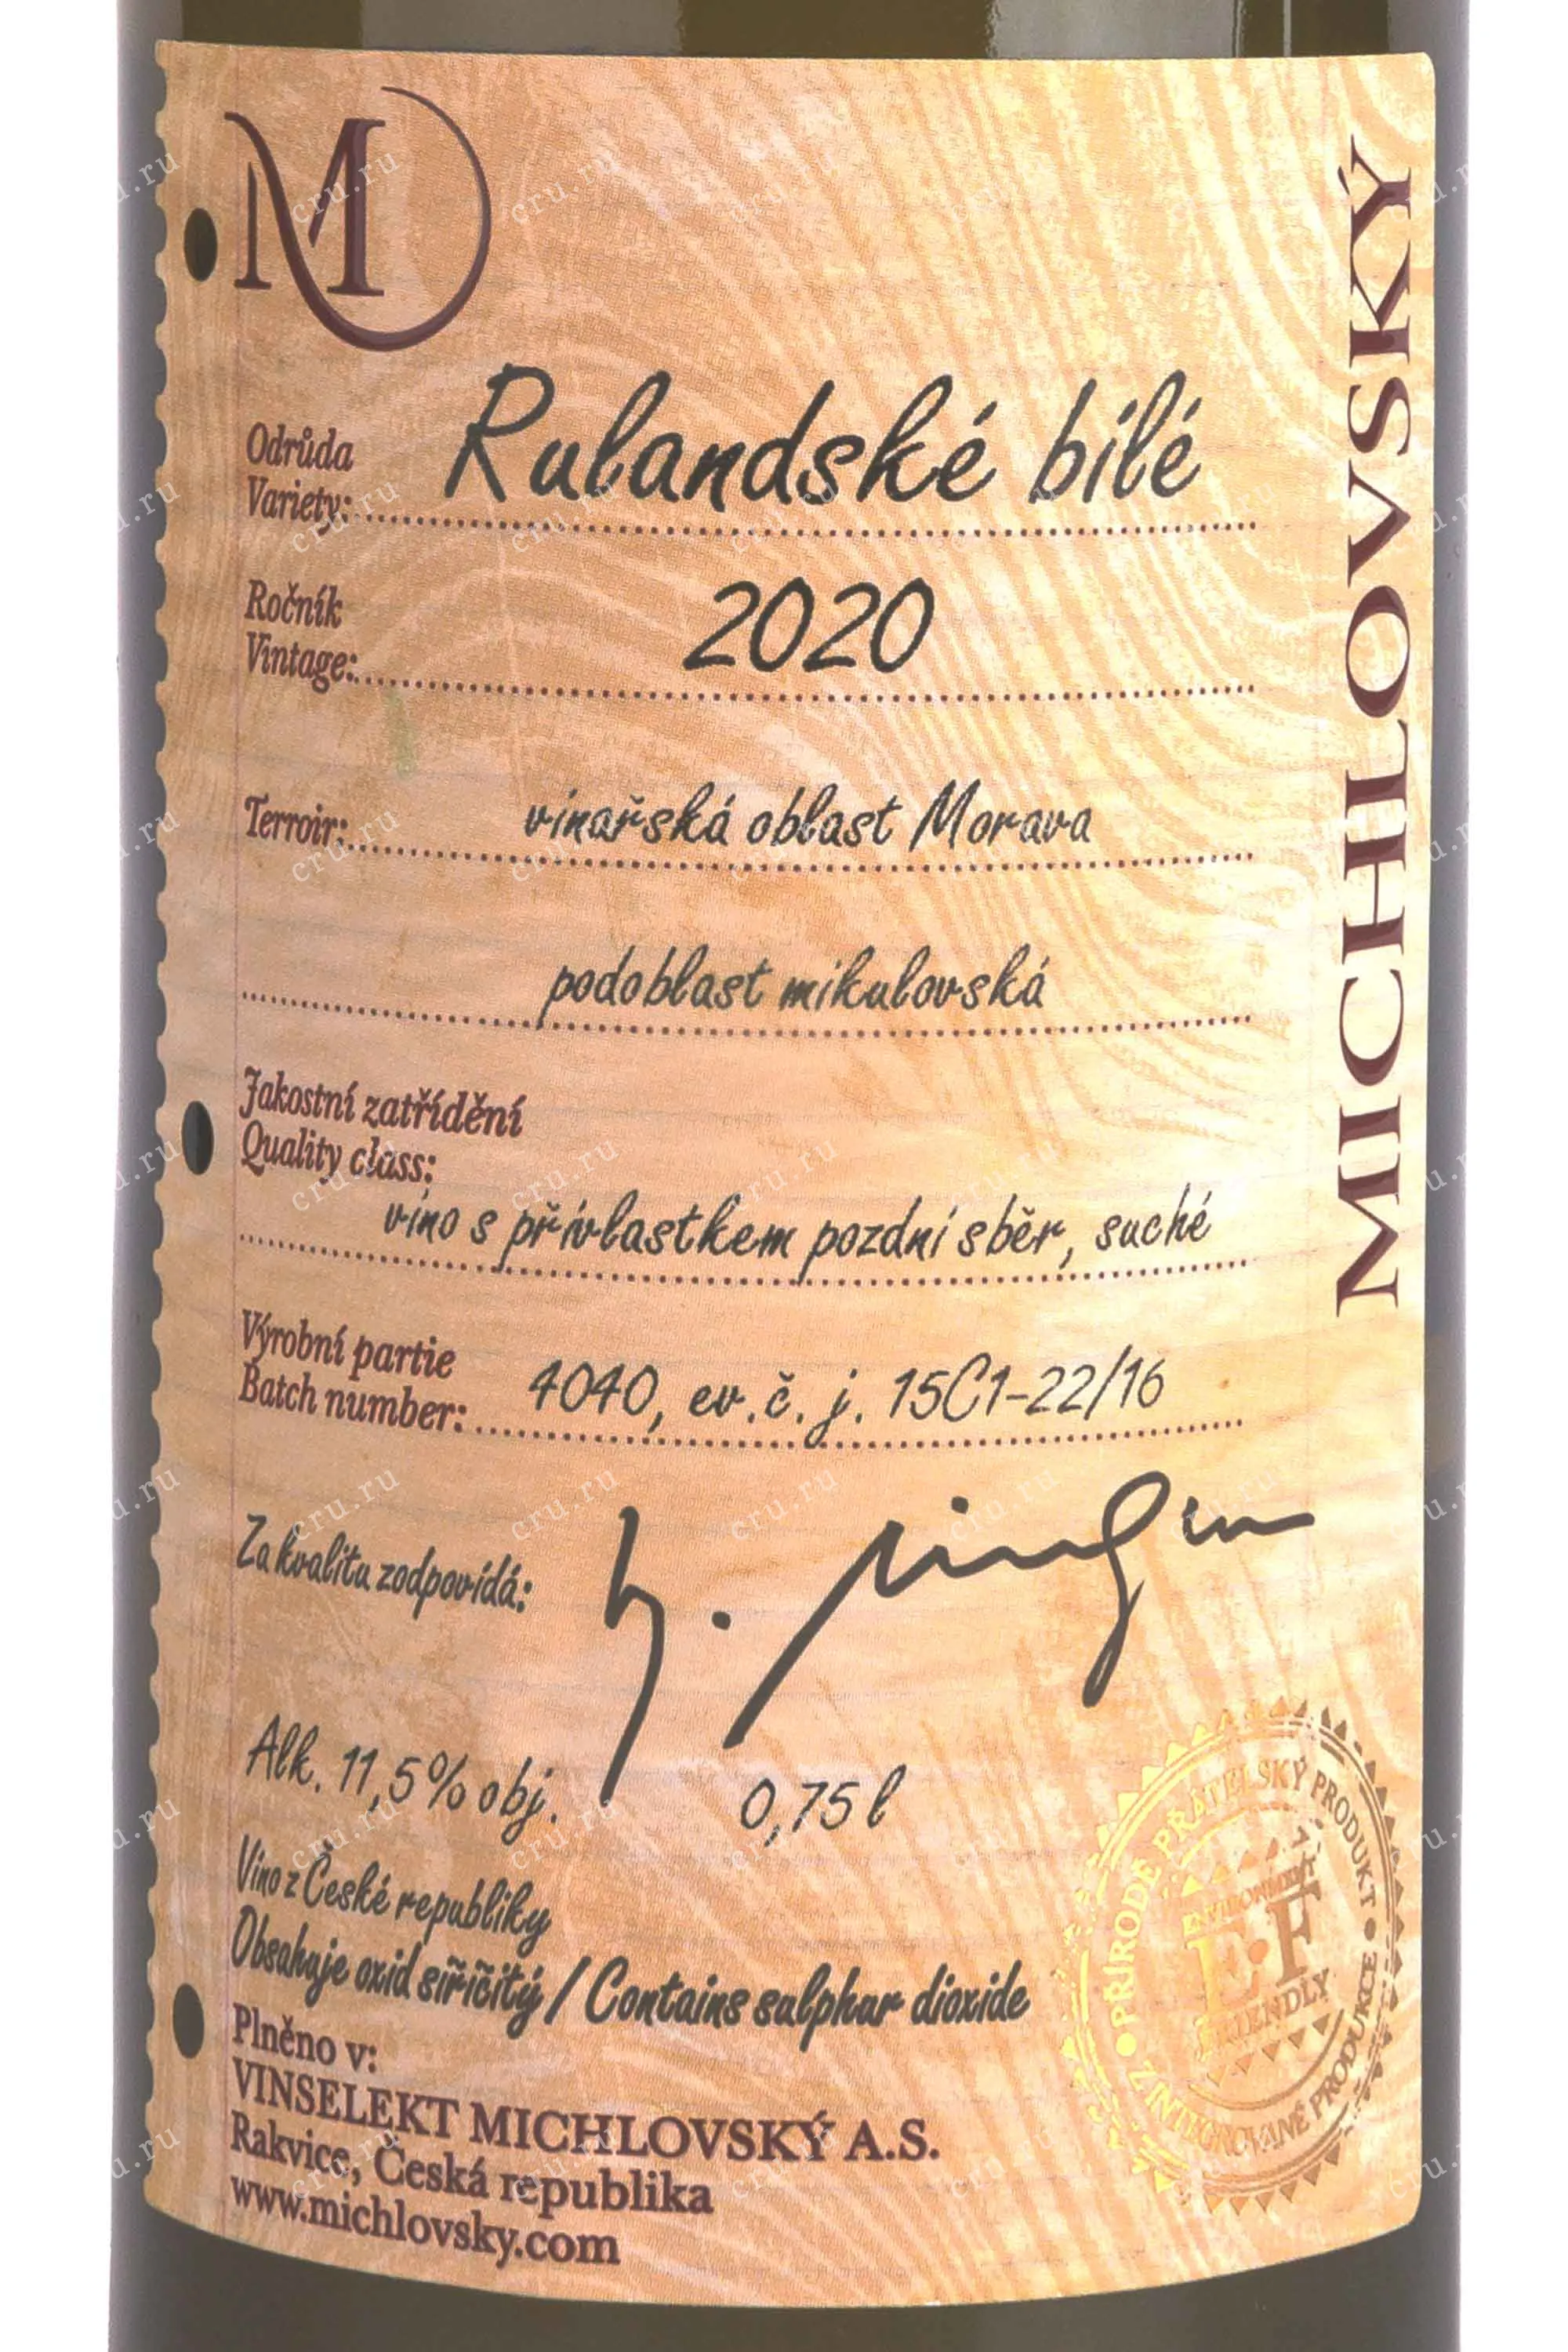 M
MICHLOVSKÝ
Odrůda
Variety: Rulandské bílé
Ročník
Vintage: 2020
Terroir: vinařská oblast Morava
podoblast mikulovská
Jakostní zatřídění
Quality class:
víno s přívlastkem pozdní sběr, suché
Výrobní partie
Batch number: 4040, ev.č. j. 15C1-22/16
Za kvalitu zodpovídá:
Alk. 11,5% obj. 0,75 l
Víno z České republiky
Obsahuje oxid siřičitý / Contains sulphur dioxide
Plněno v:
VINSELEKT MICHLOVSKÝ A.S.
Rakvice, Česká republika
www.michlovsky.com
PŘÍRODĚ PŘÁTELSKÝ PRODUKT
Z INTEGROVANÉ PRODUKCE
ENVIRONMENT
E·F
FRIENDLY
cru.ru